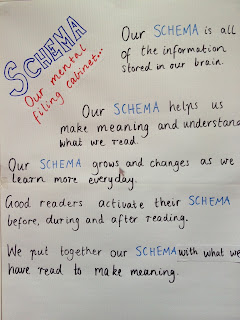 SCHEMA
Our mental
filing cabinet...
Our SCHEMA is all
of the information
stored in our brain.
Our SCHEMA helps us
make meaning and understand
what we read.
Our SCHEMA grows and changes as we
learn more everyday.
Good readers activate their SCHEMA
before, during and after reading.
We put together our SCHEMA with what we
have read to make meaning.